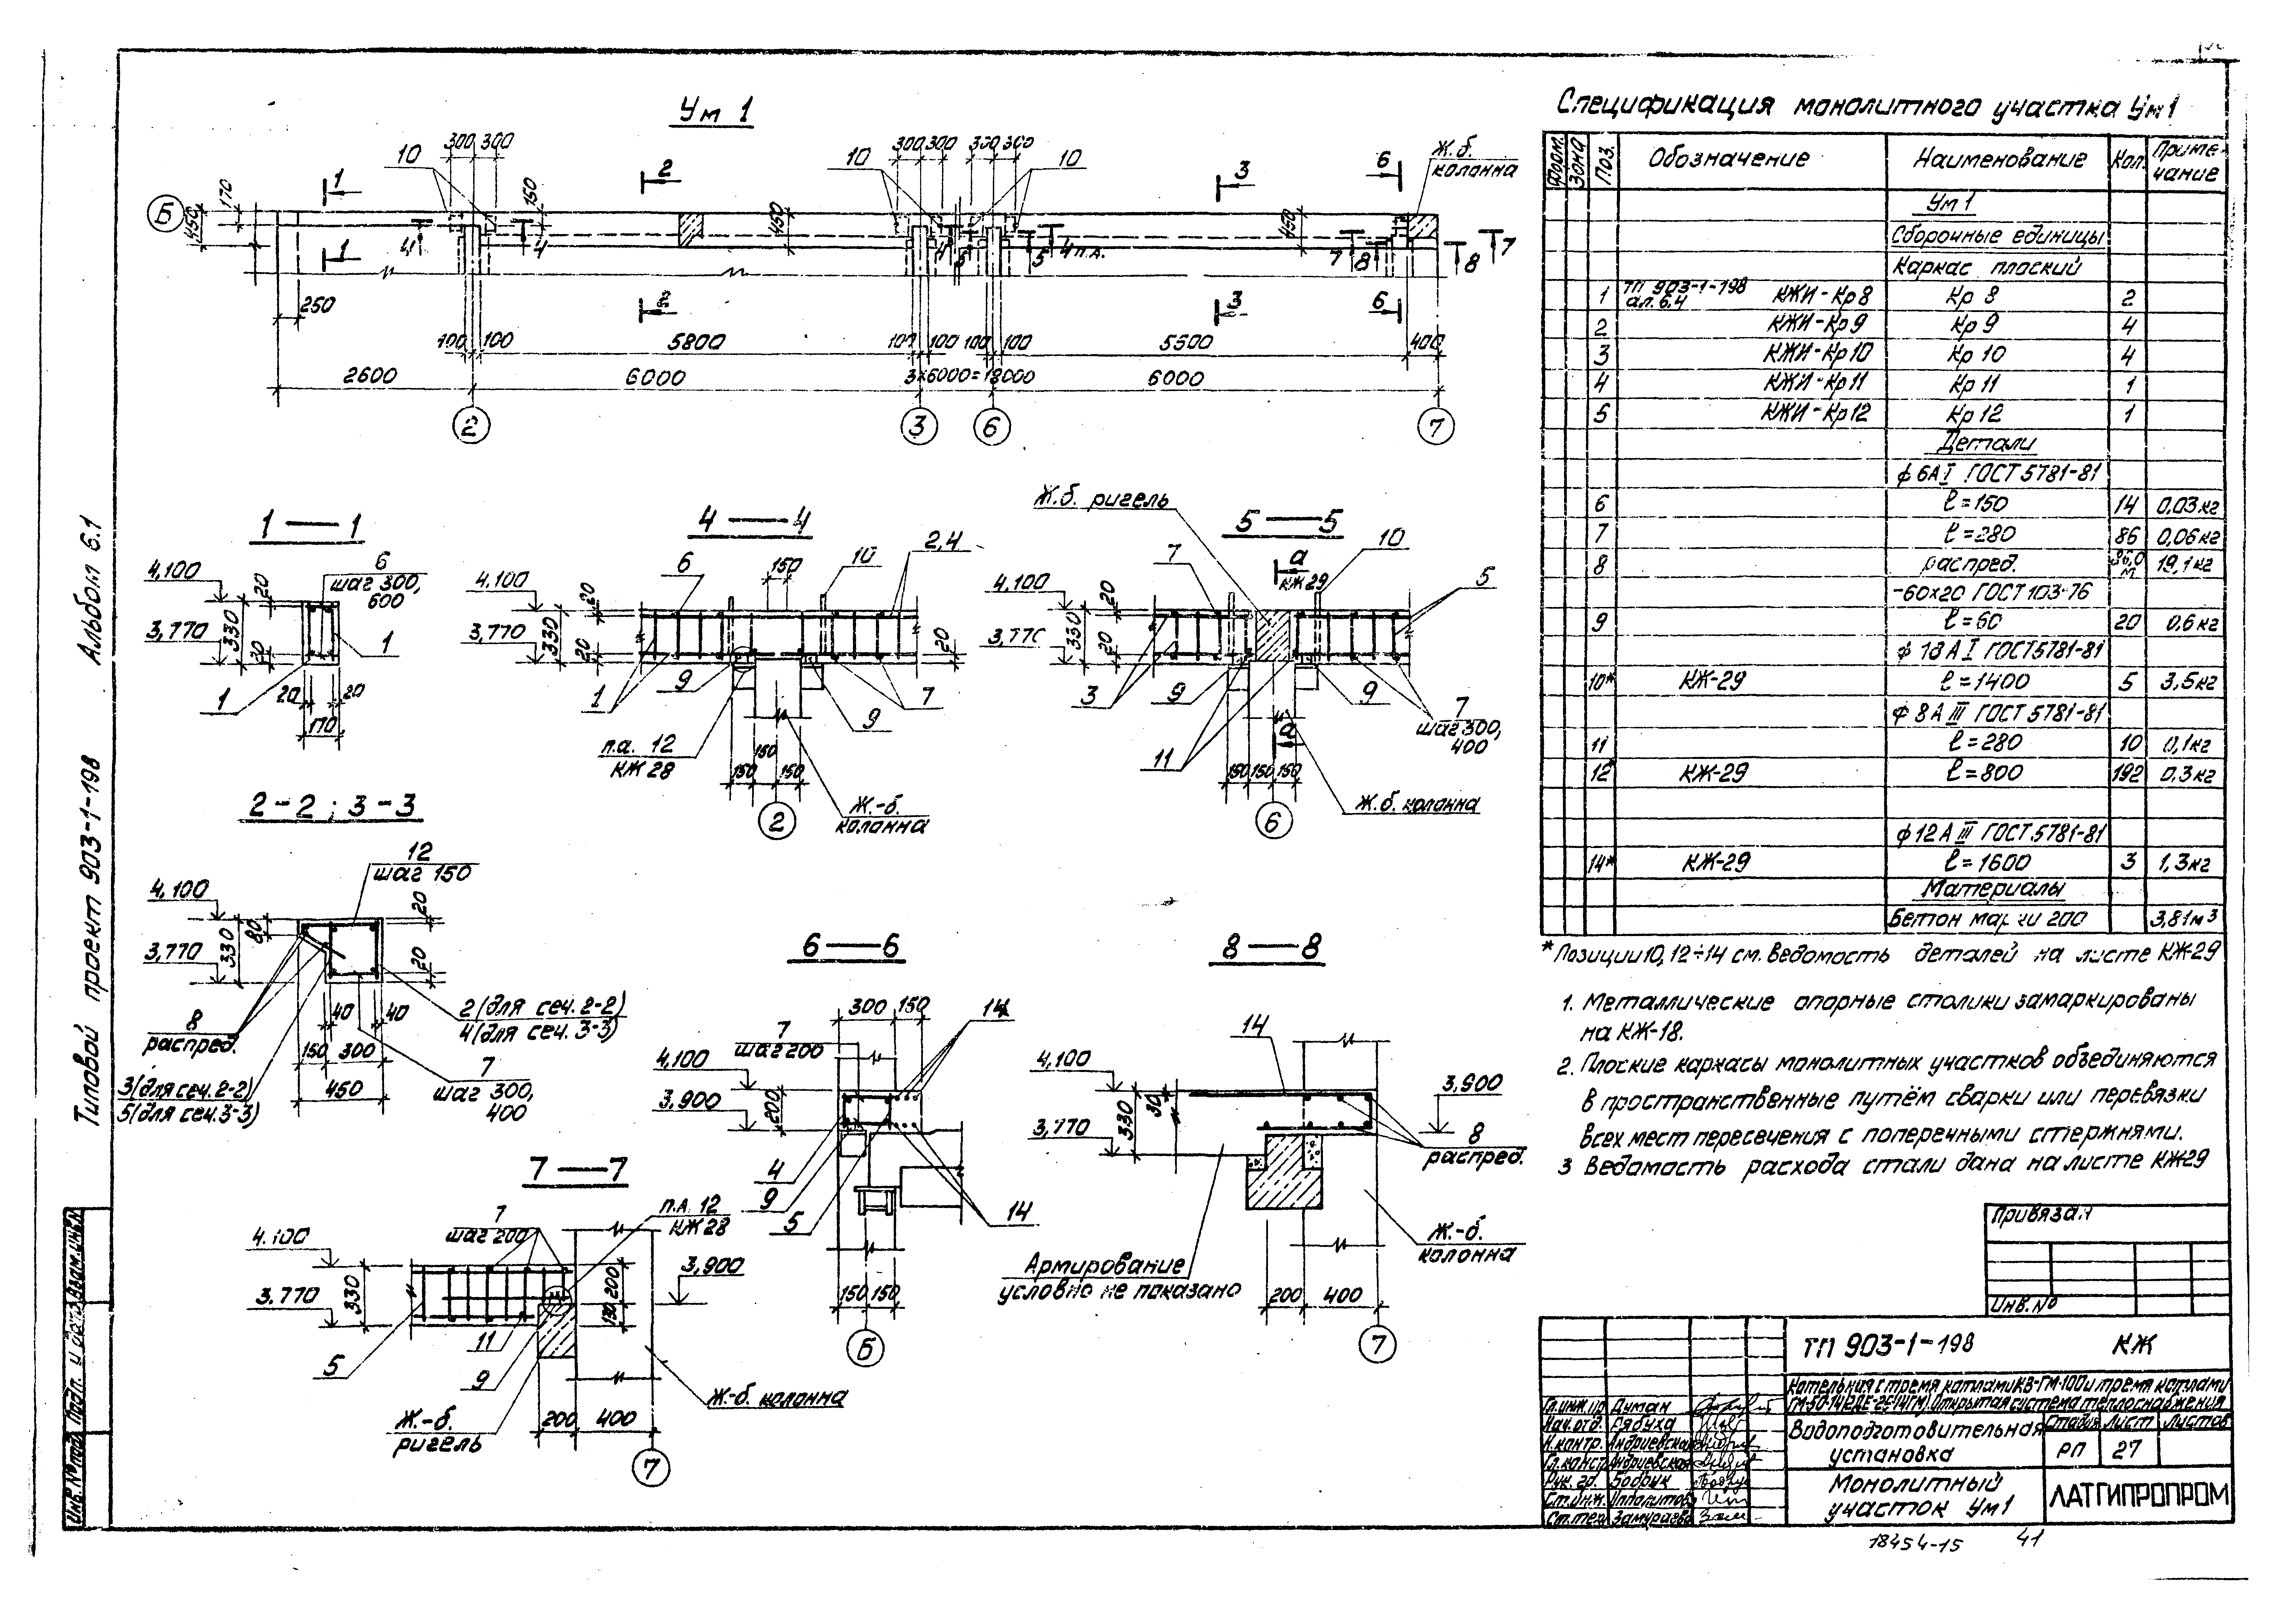 Ум 1
10
300 300
10
300 300
300 300
10
Ж.б.
колонна
1
2
3
6
Б
170
450
150
450
450
4
4
4
5
5
4 п.а.
7
8
8
7
1
2
3
6
250
100 100
5800
100 100
100 100
5500
400
2600
6000
3×6000=18000
6000
2
3
6
7
1—1
6
шаг 300,
600
4.100
3,770
20
330
20
1
1
20
20
170
4—4
6
150
10
2,4
4.100
3,770
20
330
20
20
1
9
9
7
п.а. 12
КЖ 28
150
150
150
2
Ж.-б.
колонна
5—5
Ж.б. ригель
7
а
КЖ 29
10
5
4.100
20
330
20
3
9
9
11
7
шаг 300,
400
а
150 150 150
6
Ж.б. колонна
2-2 ; 3-3
12
шаг 150
4,100
3,770
330
80
20
20
40
40
8
распред.
2 (для сеч. 2-2)
4 (для сеч. 3-3)
150 300
450
7
шаг 300,
400
3 (для сеч. 2-2)
5 (для сеч. 3-3)
6—6
300 150
14
7
шаг 200
4.100
3.900
200
4
9
5
14
150 150
Б
8—8
14
4.100
3,770
330
30
3,900
8
распред.
Армирование
условно не показано
200 400
Ж.-б.
колонна
7
7—7
7
шаг 200
п.А. 12
КЖ 28
4.100
3.770
330
200
130
3,900
5
11
9
Ж.-б.
ригель
200 400
Ж-б. колонна
7
Спецификация монолитного участка Ум 1
Форм. Зона Поз. Обозначение Наименование Кол. Примечание
Ум 1
Сборочные единицы
Каркас плоский
1 ТП 903-1-198 ал. 6.4 КЖИ-Кр8 Кр 8 2
2 КЖИ-Кр9 Кр 9 4
3 КЖИ-Кр10 Кр 10 4
4 КЖИ-Кр11 Кр 11 1
5 КЖИ-Кр12 Кр 12 1
Детали
ф 6АI ГОСТ 5781-81
6 ℓ=150 14 0,03кг
7 ℓ=280 86 0,06кг
8 распред. 86,0 м 19,1кг
-60×20 ГОСТ 103-76
9 ℓ=60 20 0,6кг
ф 18 АI ГОСТ 5781-81
10* КЖ-29 ℓ=1400 5 3,5кг
ф 8А III ГОСТ 5781-81
11 ℓ=280 10 0,1кг
12* КЖ-29 ℓ=800 192 0,3кг
ф 12А III ГОСТ 5781-81
14* КЖ-29 ℓ=1600 3 1,3кг
Материалы
Бетон марки 200 3,81м³
* Позиции 10, 12÷14 см. ведомость деталей на листе КЖ-29
1. Металлические опорные столики замаркированы
на КЖ-18.
2. Плоские каркасы монолитных участков объединяются
в пространственные путём сварки или перевязки
всех мест пересечения с поперечными стержнями.
3 Ведомость расхода стали дана на листе КЖ29
Привязан
Инв. №
ТП 903-1-198 КЖ
Котельная с тремя котлами КВ-ГМ-100 и тремя котлами
Открытая система теплоснабжения
Водоподготовительная
установка
Стадия Лист Листов
РП 27
Монолитный
участок Ум1
ЛАТГИПРОПРОМ
Гл.инж.пр. Думан
Нач.отд. Рябуха
Н.контр. Андриевская
Гл.конст. Андриевская
Рук. гр. Бодрик
Ст.инж. Ипполитова
Ст.тех.
18454-15 41
Типовой проект 903-1-198 Альбом 6.1
Инв.№подл. Подп. и дата Взам.инв.№